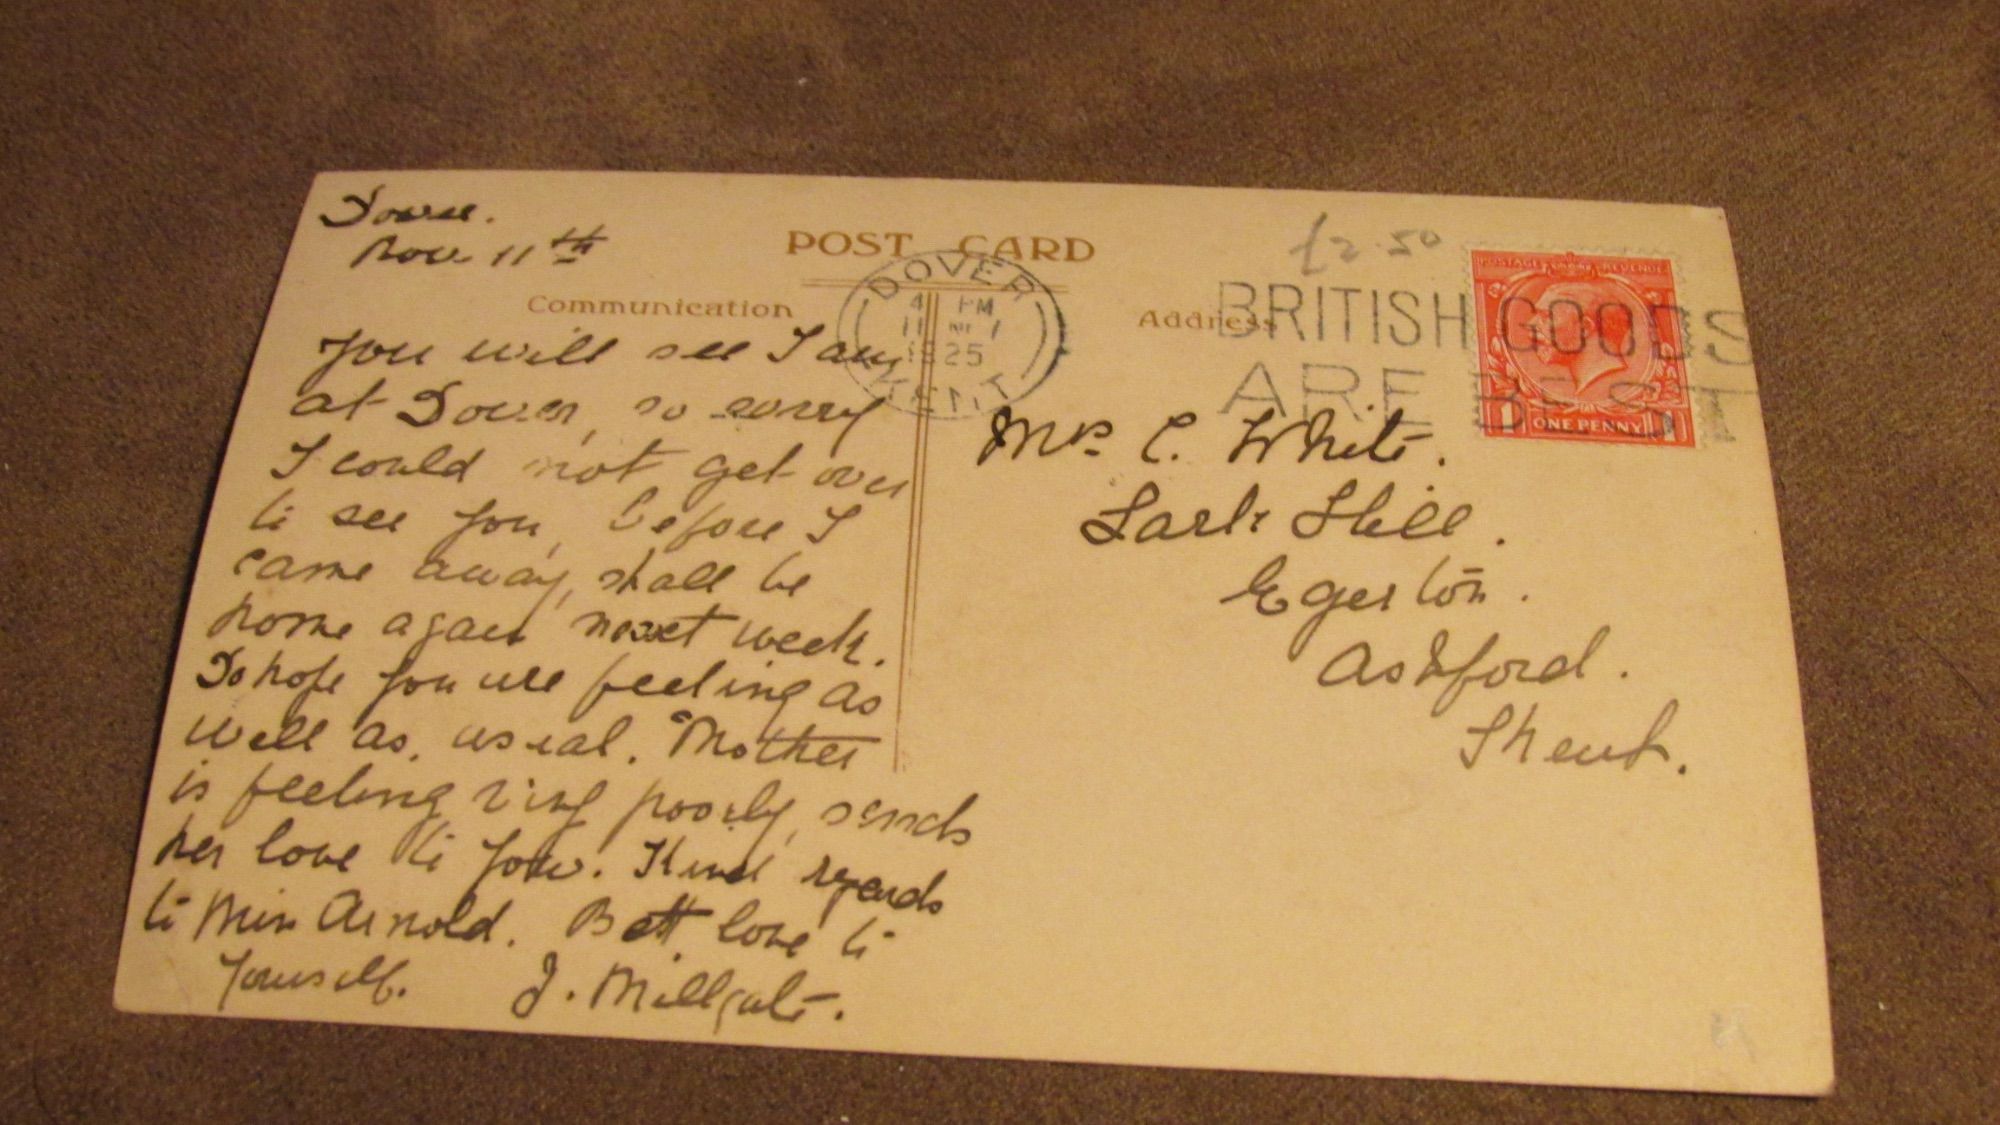 Dover.
Nov 11th
POST CARD
£2.50
Communication
Address
DOVER
4 PM
11 NO
1925
KENT
BRITISH GOODS
ARE BEST
POSTAGE REVENUE
1 ONE PENNY 1
You will see I am
at Dover, so sorry
I could not get over
to see you, before I
came away, shall be
home again next week.
Do hope you are feeling as
well as usual. Mother
is feeling very poorly, sends
her love to you. Kind regards
to Miss Arnold. Best love to
Yourself. J. Millgate.
Mrs C. White.
Lark Hill.
Egerton.
Ashford.
Kent.